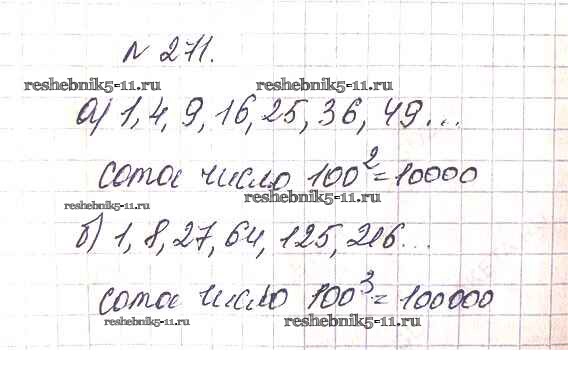 № 271.
reshebnik5-11.ru reshebnik5-11.ru
а) 1, 4, 9, 16, 25, 36, 49...
сотое число 100² = 10000
reshebnik5-11.ru reshebnik5-11.ru
б) 1, 8, 27, 64, 125, 216...
сотое число 100³ = 100000
reshebnik5-11.ru reshebnik5-11.ru